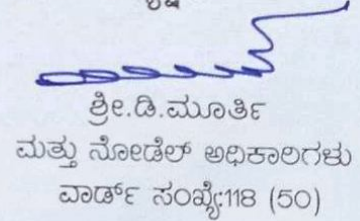 ಶ್ರೀ.ಡಿ.ಮೂರ್ತಿ
ಮತ್ತು ನೋಡೆಲ್ ಅಧಿಕಾರಿಗಳು
ವಾರ್ಡ್ ಸಂಖ್ಯೆ:118 (50)